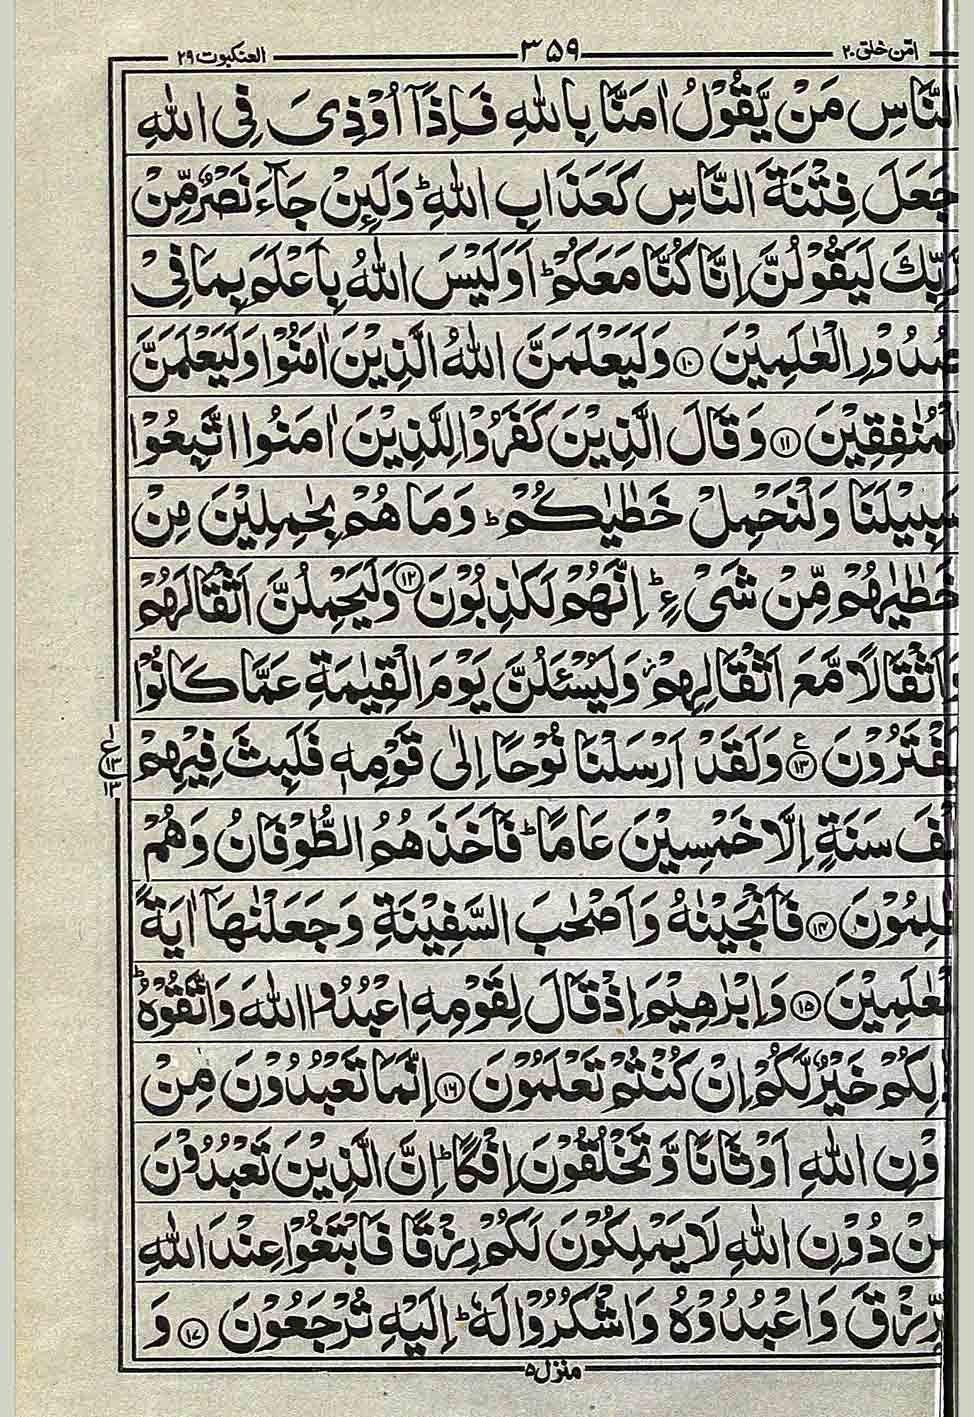 امّن خلق ۲۰ ۳۵۹ العنكبوت ۲۹
النَّاسِ مَنْ يَّقُوْلُ اٰمَنَّا بِاللّٰهِ فَاِذَاۤ اُوْذِىَ فِى اللّٰهِ
جَعَلَ فِتْنَةَ النَّاسِ كَعَذَابِ اللّٰهِ ؕ وَلَئِنْ جَآءَ نَصْرٌ مِّنْ
رَّبِّكَ لَيَقُوْلُنَّ اِنَّا كُنَّا مَعَكُمْ ؕ اَوَلَيْسَ اللّٰهُ بِاَعْلَمَ بِمَا فِىْ
صُدُوْرِ الْعٰلَمِيْنَ ۝۱۰ وَلَيَعْلَمَنَّ اللّٰهُ الَّذِيْنَ اٰمَنُوْا وَلَيَعْلَمَنَّ
الْمُنٰفِقِيْنَ ۝۱۱ وَقَالَ الَّذِيْنَ كَفَرُوْا لِلَّذِيْنَ اٰمَنُوا اتَّبِعُوْا
سَبِيْلَنَا وَلْنَحْمِلْ خَطٰيٰكُمْ ؕ وَمَا هُمْ بِحٰمِلِيْنَ مِنْ
خَطٰيٰهُمْ مِّنْ شَىْءٍ ؕ اِنَّهُمْ لَكٰذِبُوْنَ ۝۱۲ وَلَيَحْمِلُنَّ اَثْقَالَهُمْ
وَاَثْقَالًا مَّعَ اَثْقَالِهِمْ ؗ وَلَيُسْـَٔلُنَّ يَوْمَ الْقِيٰمَةِ عَمَّا كَانُوْا
يَفْتَرُوْنَ ۝۱۳ ع وَلَقَدْ اَرْسَلْنَا نُوْحًا اِلٰى قَوْمِهٖ فَلَبِثَ فِيْهِمْ
۱ ع ۱۳ ۱۳
اَلْفَ سَنَةٍ اِلَّا خَمْسِيْنَ عَامًا ؕ فَاَخَذَهُمُ الطُّوْفَانُ وَهُمْ
ظٰلِمُوْنَ ۝۱۴ فَاَنْجَيْنٰهُ وَاَصْحٰبَ السَّفِيْنَةِ وَجَعَلْنٰهَاۤ اٰيَةً
لِّلْعٰلَمِيْنَ ۝۱۵ وَاِبْرٰهِيْمَ اِذْ قَالَ لِقَوْمِهِ اعْبُدُوا اللّٰهَ وَاتَّقُوْهُ ؕ
ذٰلِكُمْ خَيْرٌ لَّكُمْ اِنْ كُنْتُمْ تَعْلَمُوْنَ ۝۱۶ اِنَّمَا تَعْبُدُوْنَ مِنْ
دُوْنِ اللّٰهِ اَوْثَانًا وَّتَخْلُقُوْنَ اِفْكًا ؕ اِنَّ الَّذِيْنَ تَعْبُدُوْنَ
مِنْ دُوْنِ اللّٰهِ لَا يَمْلِكُوْنَ لَكُمْ رِزْقًا فَابْتَغُوْا عِنْدَ اللّٰهِ
الرِّزْقَ وَاعْبُدُوْهُ وَاشْكُرُوْا لَهٗ ؕ اِلَيْهِ تُرْجَعُوْنَ ۝۱۷ وَ
منزل ۵